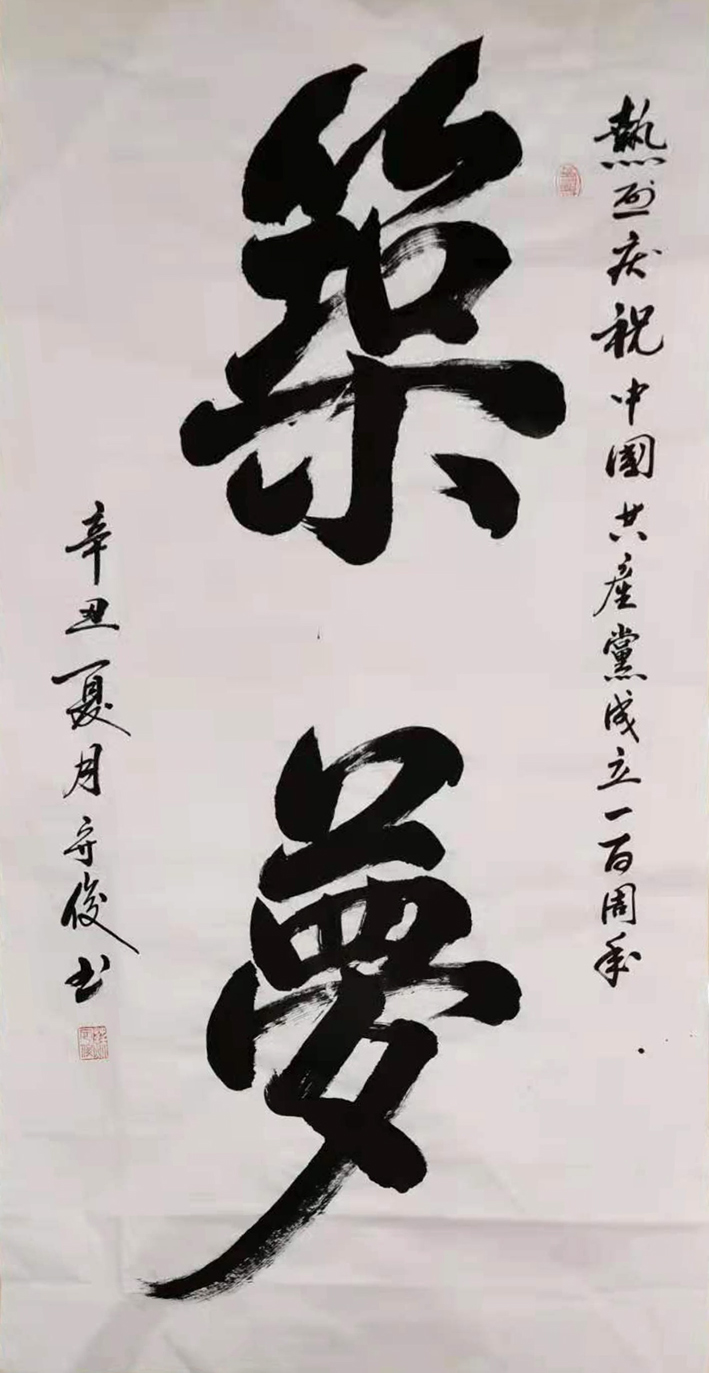 熱烈庆祝中國共産黨成立一百周年
築夢
辛丑夏月守俊书